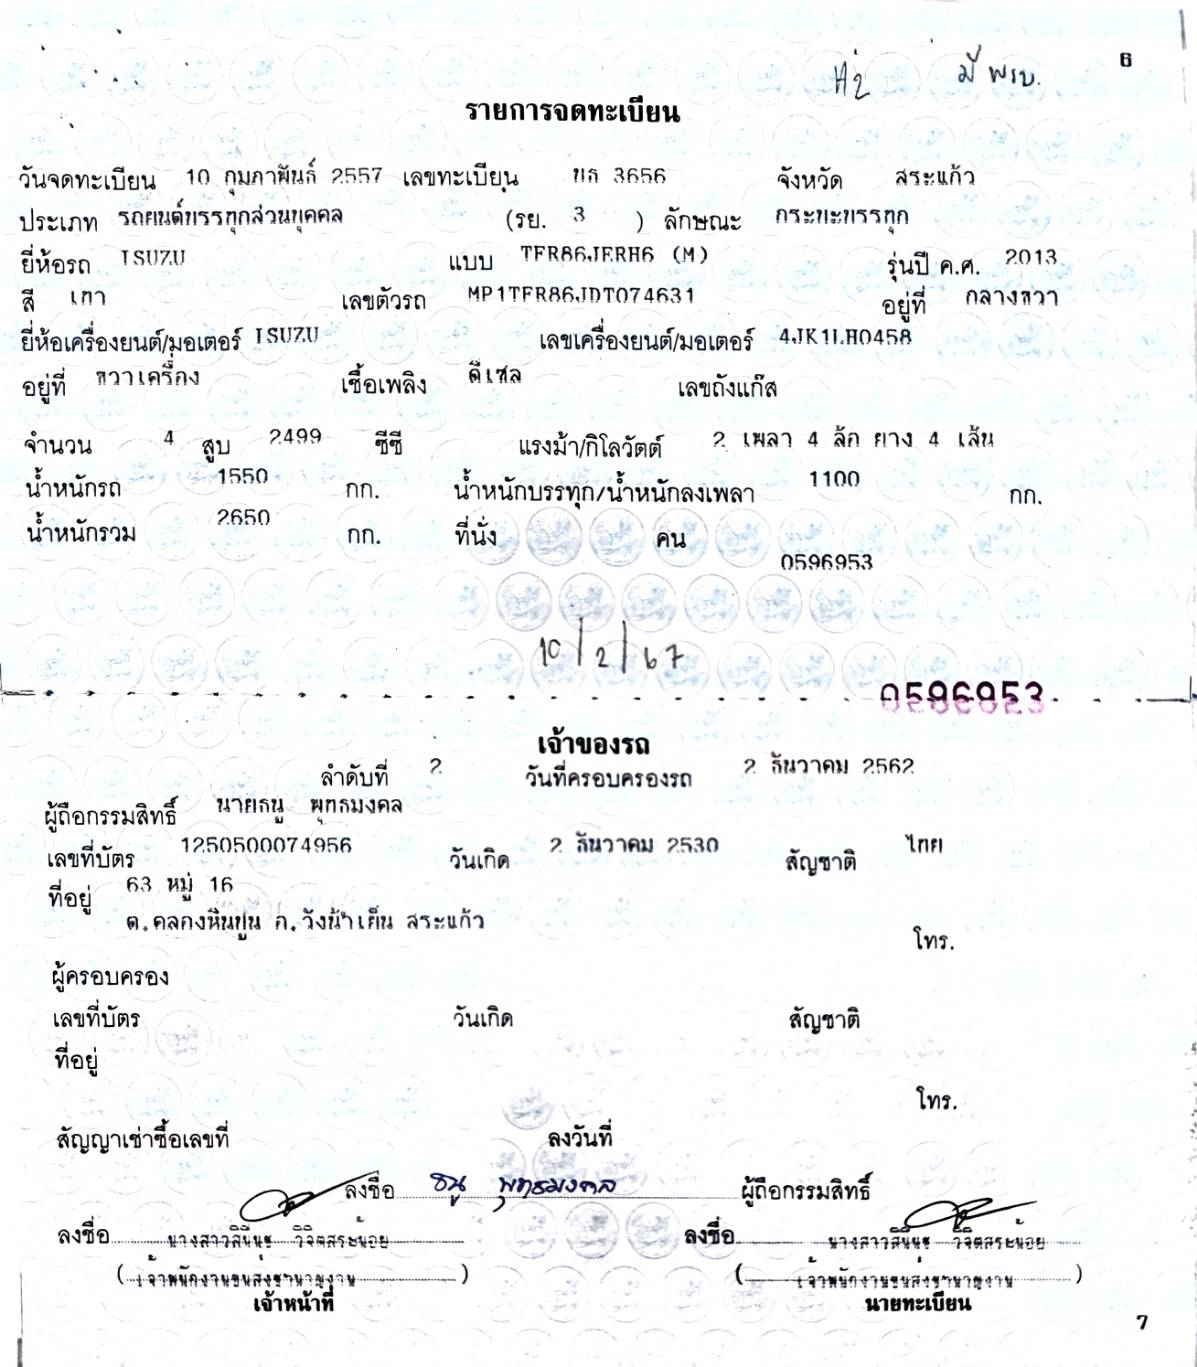 6
มี พรบ.
รายการจดทะเบียน
วันจดทะเบียน 10 กุมภาพันธ์ 2557 เลขทะเบียน บธ 3656 จังหวัด สระแก้ว
ประเภท รถยนต์บรรทุกส่วนบุคคล (รย. 3 ) ลักษณะ กระบะบรรทุก
ยี่ห้อรถ ISUZU แบบ TFR86JERH6 (M) รุ่นปี ค.ศ. 2013
สี เทา เลขตัวรถ MP1TFR86JDT074631 อยู่ที่ กลางขวา
ยี่ห้อเครื่องยนต์/มอเตอร์ ISUZU เลขเครื่องยนต์/มอเตอร์ 4JK1LH0458
อยู่ที่ ขวาเครื่อง เชื้อเพลิง ดีเซล เลขถังแก๊ส
จำนวน 4 สูบ 2499 ซีซี แรงม้า/กิโลวัตต์ 2 เพลา 4 ล้อ ยาง 4 เส้น
น้ำหนักรถ 1550 กก. น้ำหนักบรรทุก/น้ำหนักลงเพลา 1100 กก.
น้ำหนักรวม 2650 กก. ที่นั่ง คน
0596953
10/2/67
0596953
เจ้าของรถ
ลำดับที่ 2 วันที่ครอบครองรถ 2 ธันวาคม 2562
ผู้ถือกรรมสิทธิ์ นายธนู พุทธมงคล
เลขที่บัตร 1250500074956 วันเกิด 2 ธันวาคม 2530 สัญชาติ ไทย
ที่อยู่ 63 หมู่ 16
ต.คลองหินปูน อ.วังน้ำเย็น สระแก้ว
โทร.
ผู้ครอบครอง
เลขที่บัตร วันเกิด สัญชาติ
ที่อยู่
โทร.
สัญญาเช่าซื้อเลขที่ ลงวันที่
ลงชื่อ ธนู พุทธมงคล ผู้ถือกรรมสิทธิ์
ลงชื่อ นางสาวสินีนุช วิจิตสระน้อย ลงชื่อ นางสาวสินีนุช วิจิตสระน้อย
(เจ้าพนักงานขนส่งชำนาญงาน) (เจ้าพนักงานขนส่งชำนาญงาน)
เจ้าหน้าที่ นายทะเบียน
7